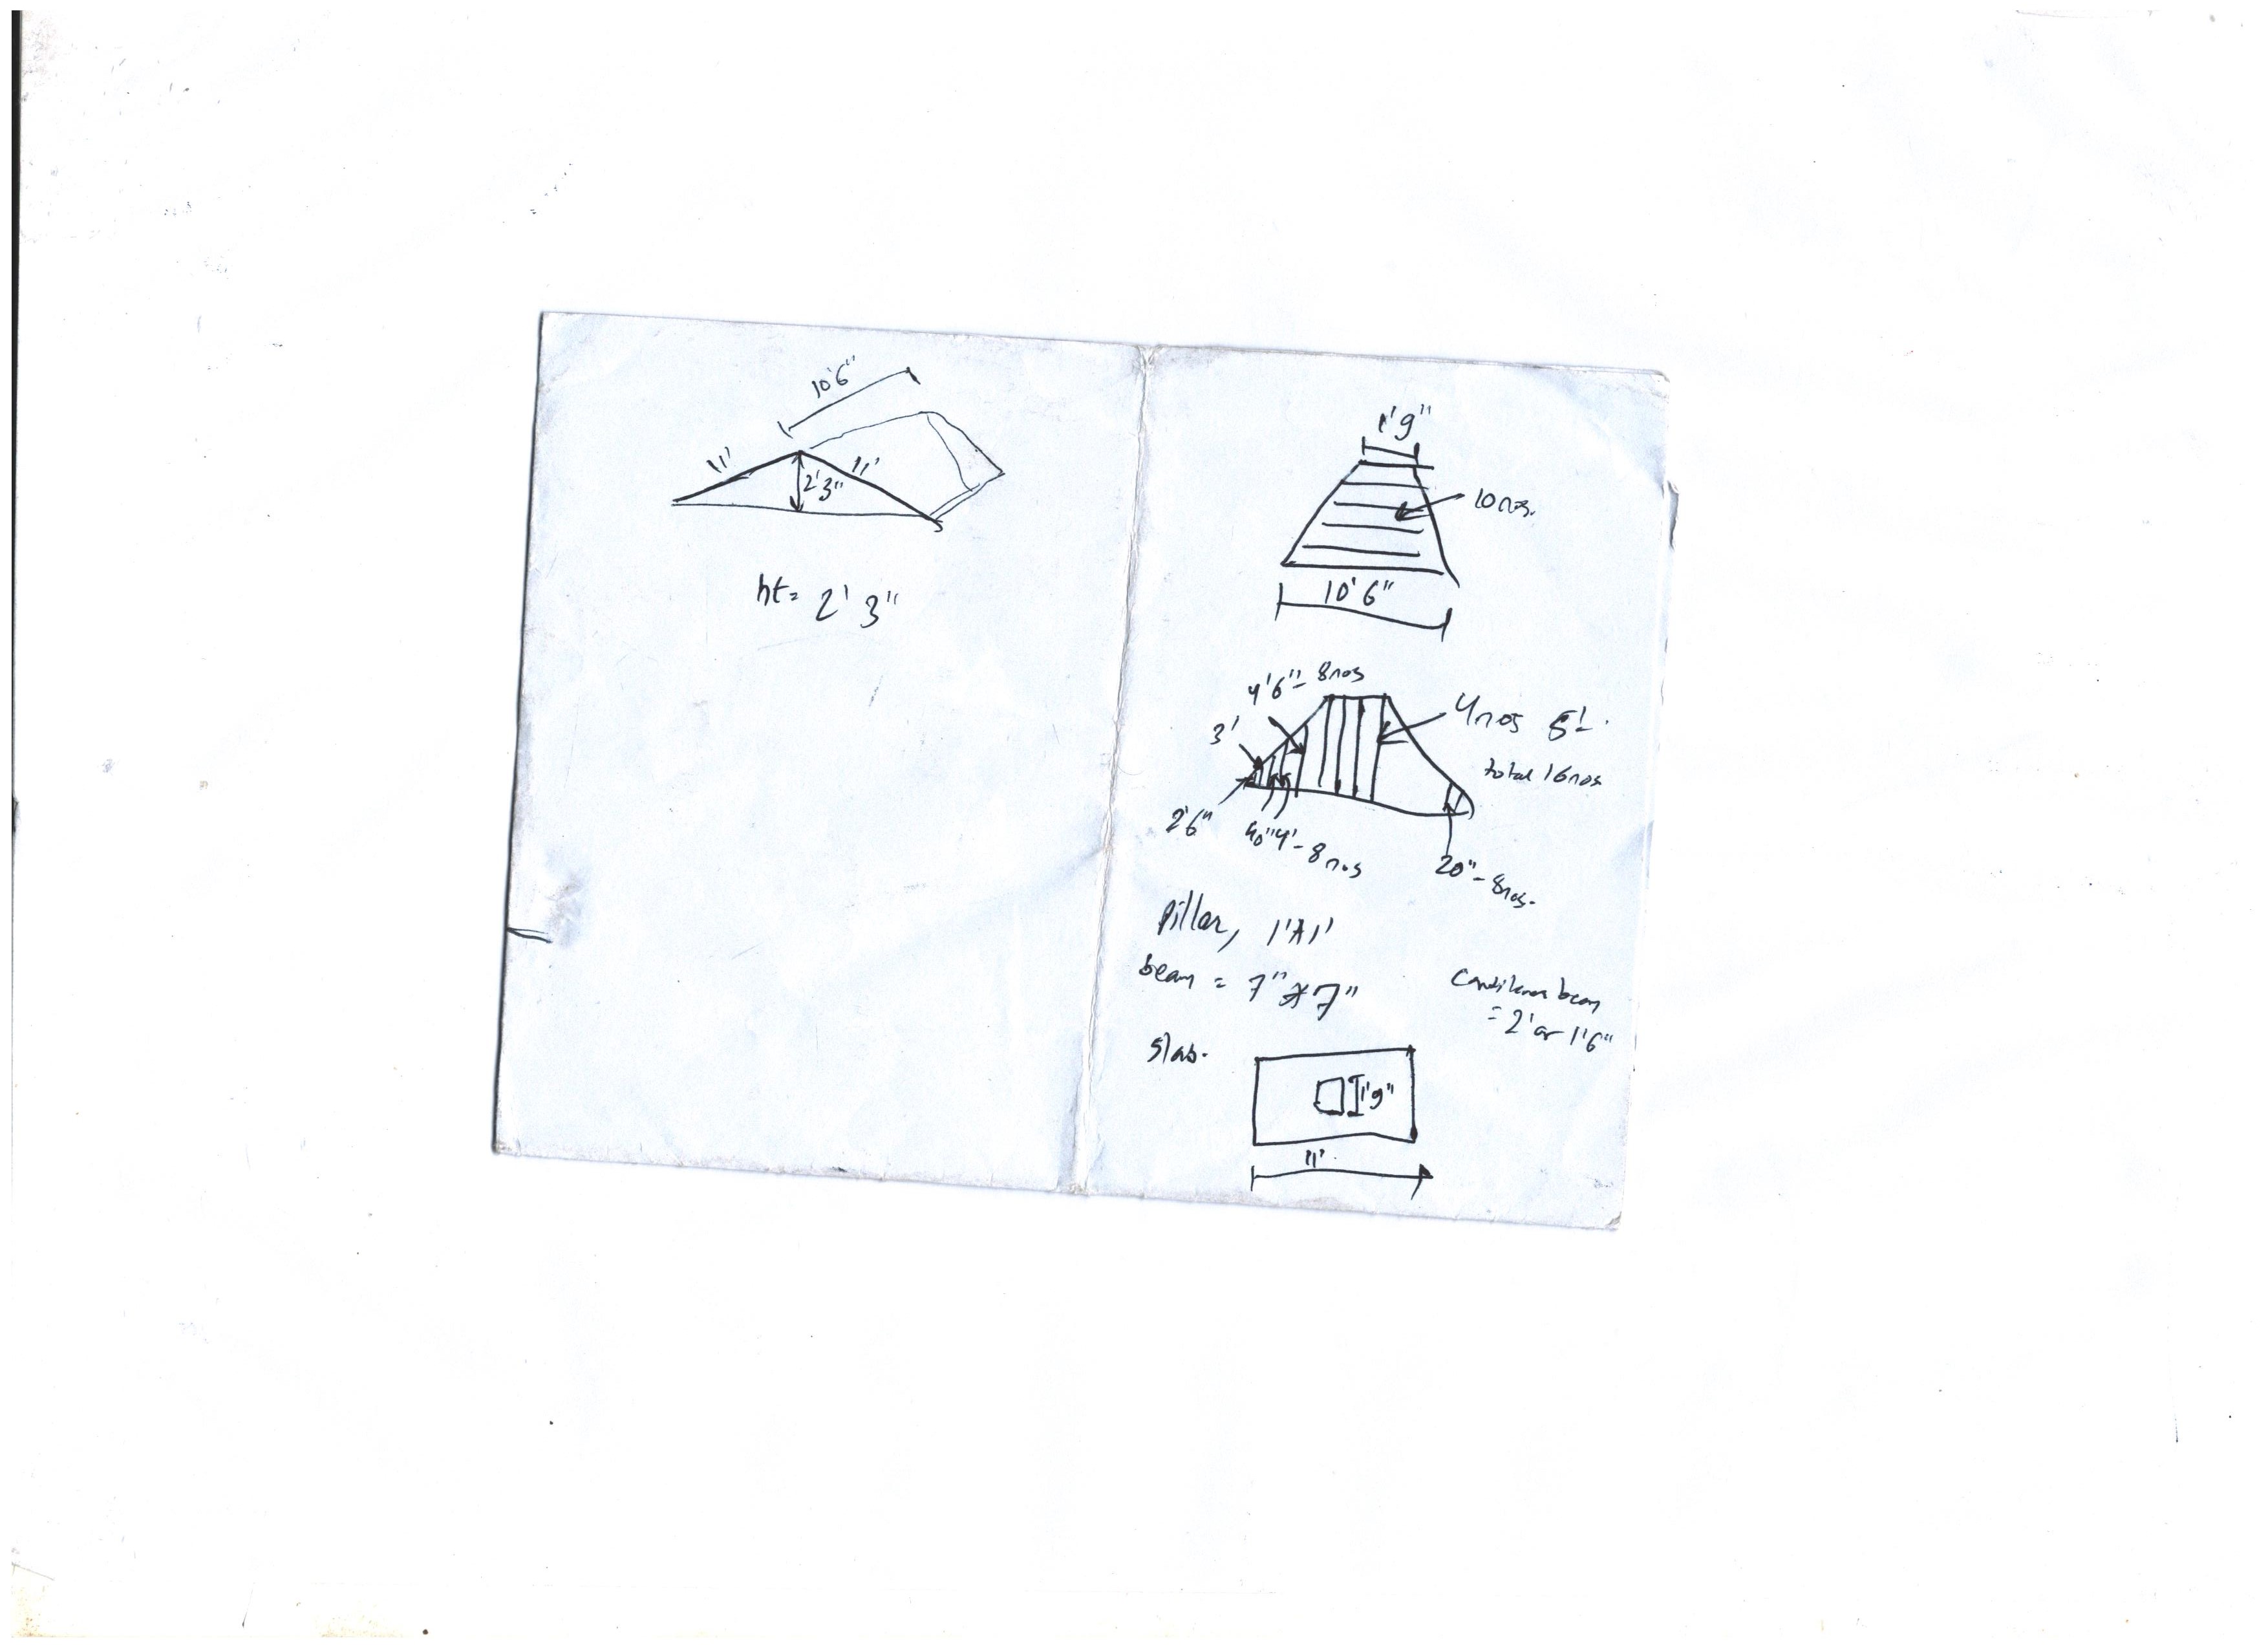 10'6"
11'
11'
2'3"
ht= 2' 3"
1'9"
10nos.
10'6"
4'6"- 8nos
4nos 5'
3'
total 16nos
2'6"
40"4'- 8nos
20"- 8nos.
Pillar, 1'x1'
beam = 7"x7"
beam
= 2' or 1'6"
Slab.
1'9"
11'